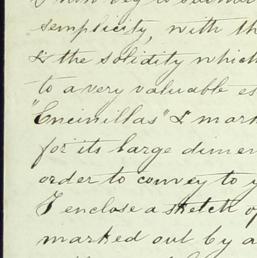 semplicity, with th
& the solidity which
to a very valuable es
"Encinillas" & mark
for its large dimen
order to convey to y
I enclose a sketch of
marked out by a